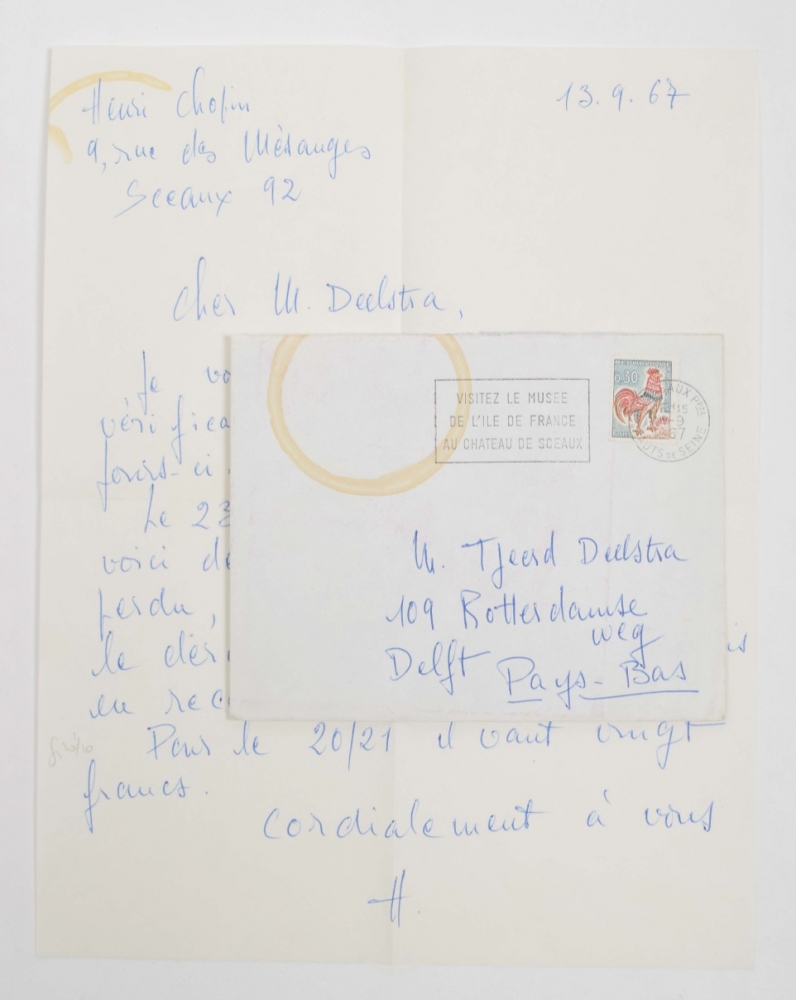 Henri Chopin
13.9.67
9, rue des Mésanges
Sceaux 92
Cher M. Deelstra,
Je vo
vérifica
Le 23
voici de
perdu,
le dern
en rec
is
Pour le 20/21 il vaut vingt
francs.
Cordialement à vous
H.
0,30
VISITEZ LE MUSEE
DE L'ILE DE FRANCE
AU CHATEAU DE SCEAUX
M. Tjeerd Deelstra
109 Rotterdamse
weg
Delft
Pays-Bas